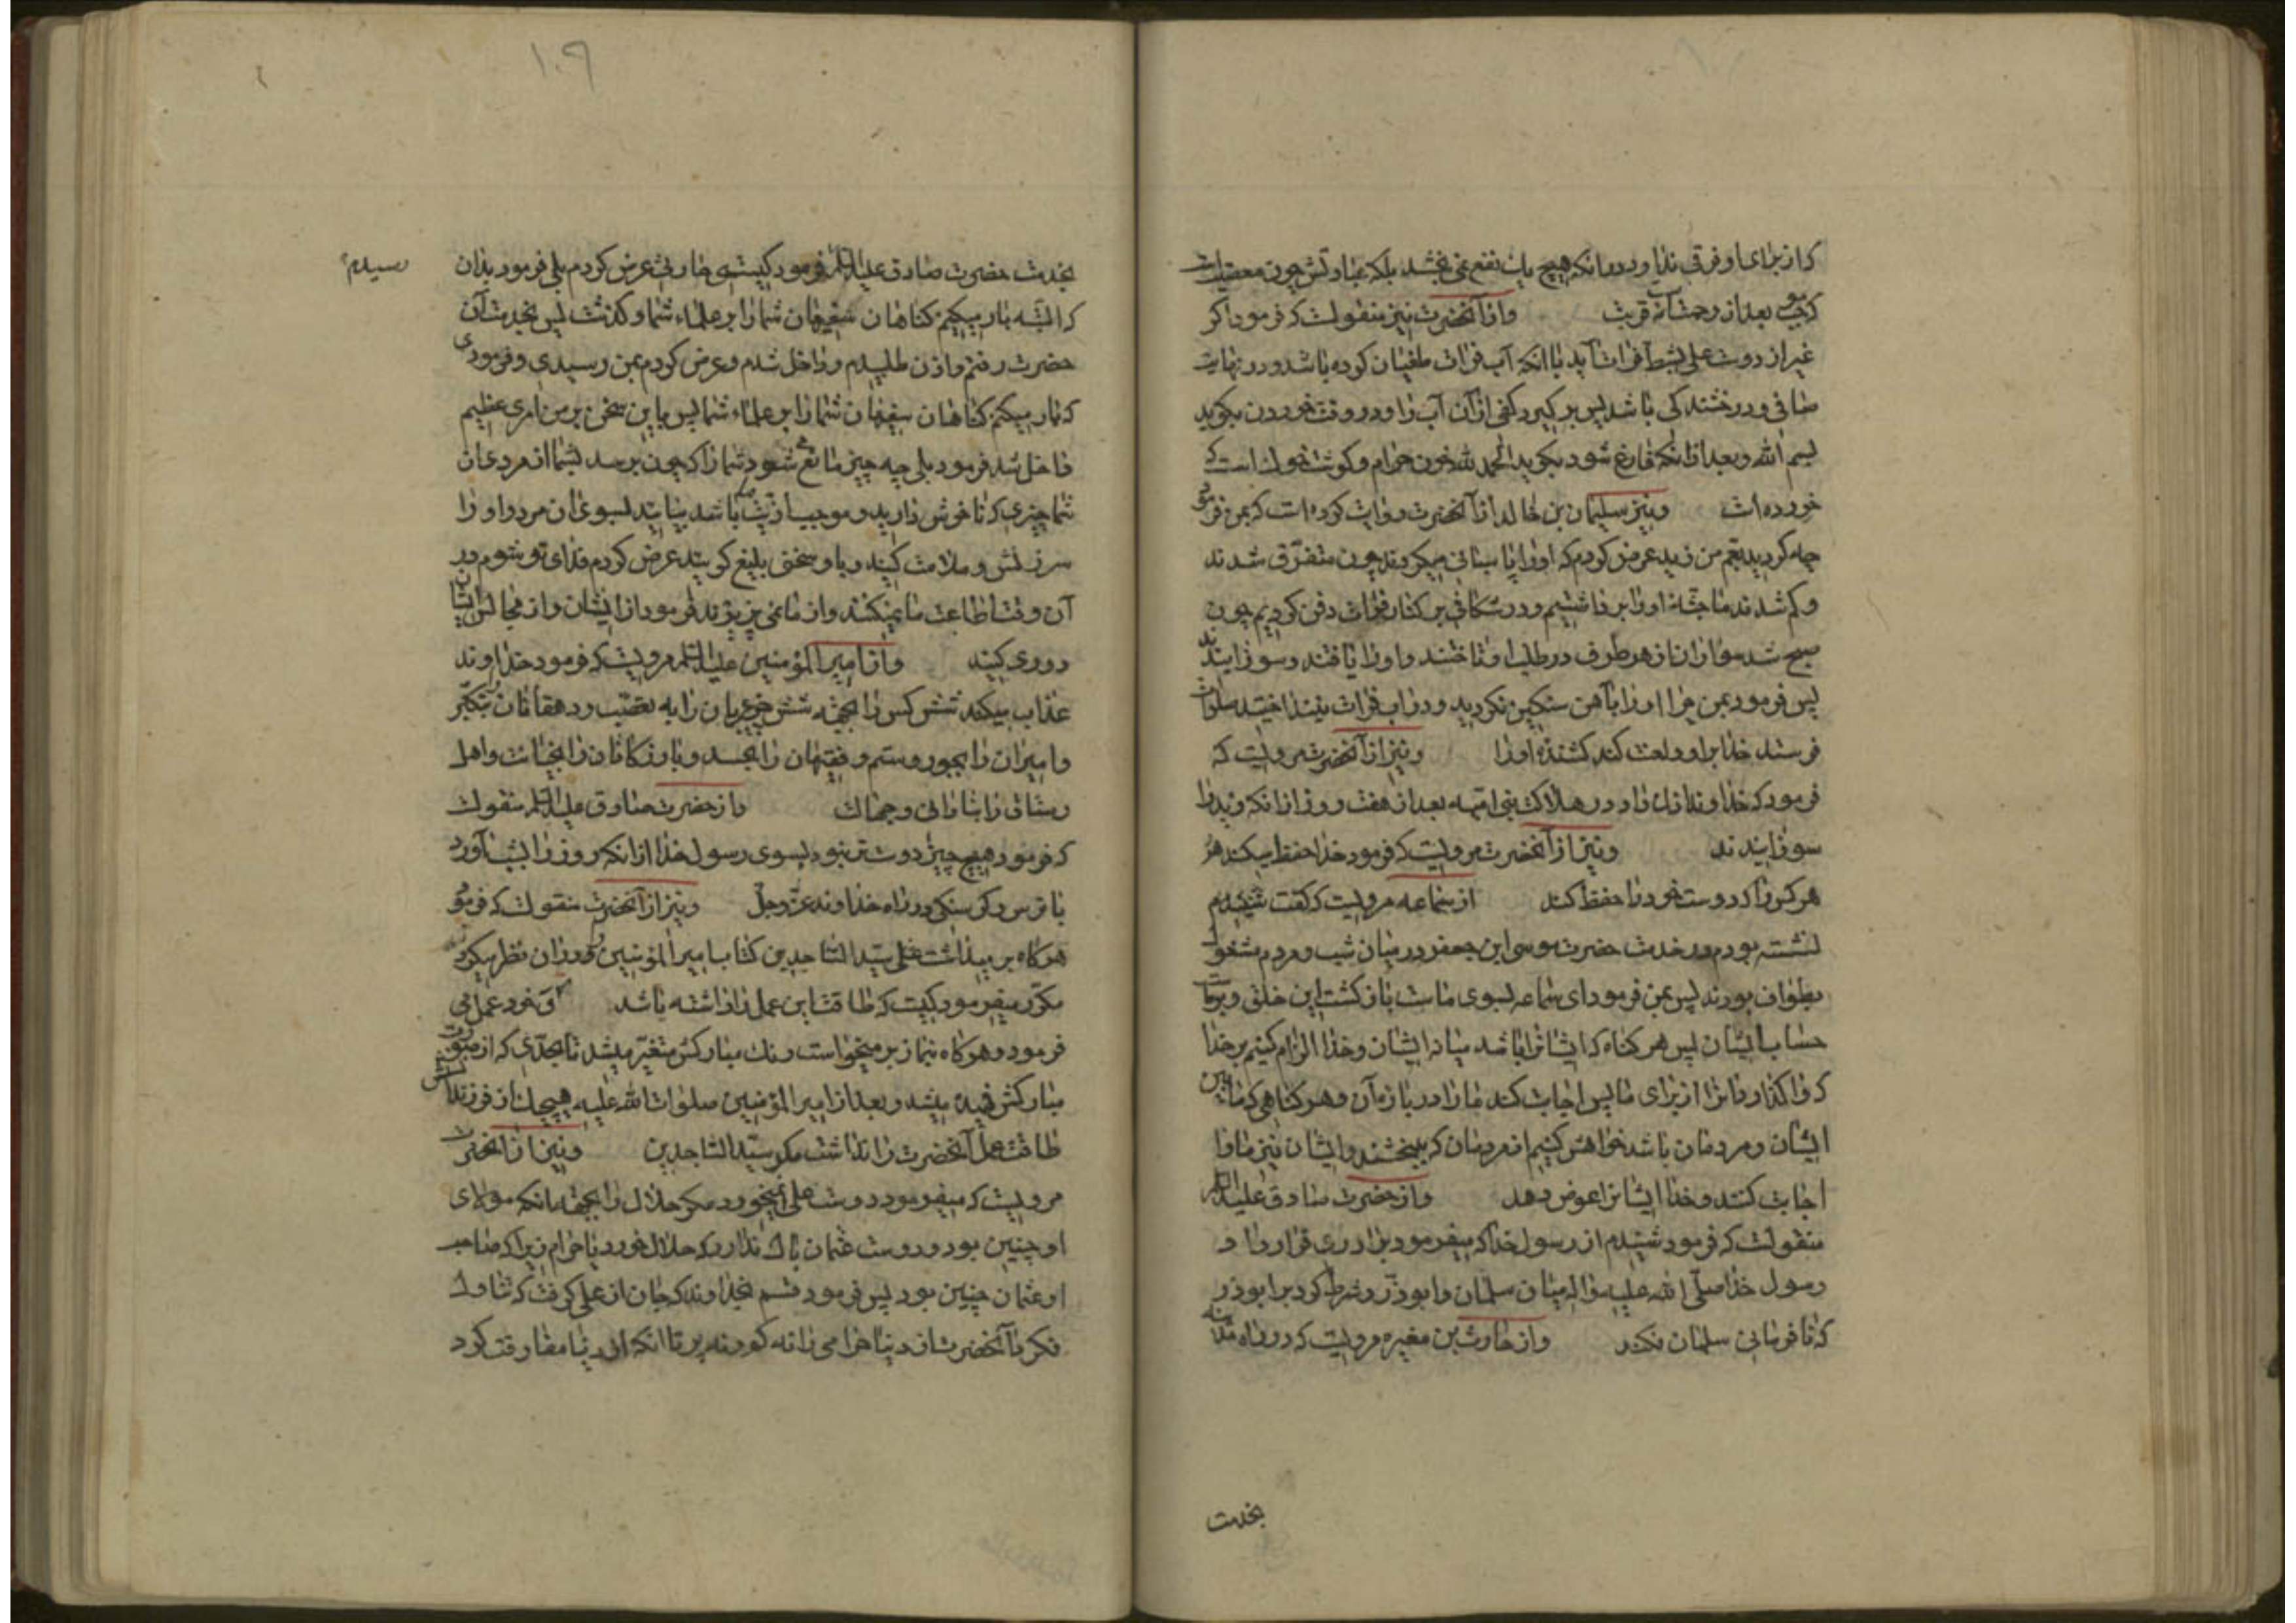 که از برای او فرقی ندارد در آنکه هیچ یک نفع نمی بخشد بلکه عبادتش چون معصیت
بعد از رحمت قریب و از آنحضرت نیز منقولست که فرمود اگر
غیر از دوست علی بشط فرات آید با آنکه آب فرات طغیان کرده باشد و در نهایت
صافی و درخشندکی باشد پس بر کیرد کفی از آن آب را و در وقت خوردن بکوید
بسم الله و بعد از آنکه فارغ شود بکوید الحمد لله خون حرام و کوشت خوک است که
خورده است و نیز سلیمان بن خالد از آنحضرت روایت کرده است که بمن فرمود
چه کردید بعم من زید عرض کردم که او را پاسبانی میکردند چون متفرق شدند
و کم شدند ما جثه او را برداشتیم و در شکافی بر کنار فرات دفن کردیم چون
صبح شد سواران از هر طرف در طلب او تاختند و او را یافتند و سوزانیدند
پس فرمود بمن چرا او را بآهن سنکین نکردید و در آب فرات نینداختید صلوات
فرستد خدا بر او و لعنت کند کشنده او را و نیز از آنحضرت مرویست که
فرمود که خداوند اذن داد در هلاکت بنی امیه بعد از هفت روز از آنکه زید را
سوزانیدند و نیز از آنحضرت مرویست که فرمود خدا حفظ میکند هر
هر کس را که دوست خود را حفظ کند از سماعه مرویست که گفت
نشسته بودم در خدمت حضرت موسی ابن جعفر در میان شب و مردم مشغول
بطواف بودند پس بمن فرمود ای سماعه بسوی ماست بازکشت این خلق و بر ماست
حساب ایشان پس هر کناه که ایشانرا باشد میانه ایشان و خدا الزام کنیم بر خدا
که واکذارد آنرا از برای ما پس اجابت کند ما را در باره آن و هر کناهی که مابین
ایشان و مردمان باشد خواهش کنیم از مردمان که ببخشند و ایشان نیز ما را
اجابت کنند و خدا ایشانرا عوض دهد و از حضرت صادق علیه السلم
منقولست که فرمود شنیدم از رسول خدا که میفرمود برادری قرار داد
رسول خدا صلی الله علیه و اله میان سلمان و ابوذر و شرط کرد بر ابوذر
که نافرمانی سلمان نکند و از حارث بن مغیره مرویست که در راه مدینه
بخدمت
۱۰۹
بخدمت حضرت صادق علیه السلم رسیدم فرمود کیستی حارثی عرض کردم بلی فرمود بدان
که البته بار میکنم کناهان سفیهان شما را بر علماء شما و کذشت پس بخدمت آن
حضرت رفتم و اذن طلبیدم و داخل شدم و عرض کردم بمن رسیدی و فرمودی
که بار میکنم کناهان سفیهان شما را بر علماء شما پس باین سخن بر من امری عظیم
داخل شد فرمود بلی چه چیز مانع میشود شما را که چون برسد بشما از مردی از
شما چیزی که ناخوش دارید و موجب اذیت ما باشد بیایید بسوی آن مرد و او را
سرزنش و ملامت کنید و با او سخن بلیغ کویید عرض کردم فدای تو شوم در
آن وقت اطاعت ما نمیکنند و از ما نمی پزیرند فرمود از ایشان و از مجالس ایشان
دوری کنید و از امیر المؤمنین علیه السلم مرویست که فرمود خداوند
عذاب میکند شش کس را بجهة شش چیز عربان را به تعصب و دهقانان را بتکبر
و امیران را بجور و ستم و فقیهان را بحسد و بازرکانان را بخیانت و اهل
رستاق را بنادانی و جهالت و از حضرت صادق علیه السلم منقولست
که فرمود هیچ چیز دوستر نبود بسوی رسول خدا از آنکه روز را بشب آورد
با ترس و کرسنکی در راه خداوند عز و جل و نیز از آنحضرت منقولست که فرمود
هرکاه بر میداشت علی سید الساجدین کتاب امیر المؤمنین و در آن نظر میکرد
مکرر میفرمود کیست که طاقت این عمل را داشته باشد و خود عمل می
فرمود و هرکاه بنماز برمیخواست رنک مبارکش متغیر میشد تا بحدی که از صورت
مبارکش فهمیده میشد و بعد از امیر المؤمنین صلوات الله علیه هیچیک از فرزندانش
طاقت عمل آنحضرت را نداشت مکر سید الساجدین و نیز از آنحضرت
مرویست که میفرمود دوست علی نمیخورد مکر حلال را بجهة آنکه مولای
او چنین بود و دوست عثمان باک ندارد که حلال خورد یا حرام زیرا که صاحب
او عثمان چنین بود پس فرمود قسم بخداوندی که جان از علی کرفت که تناول
نکرد آنحضرت از دنیا حرامی را نه کم و نه پر تا آنکه از دنیا مفارقت کرد